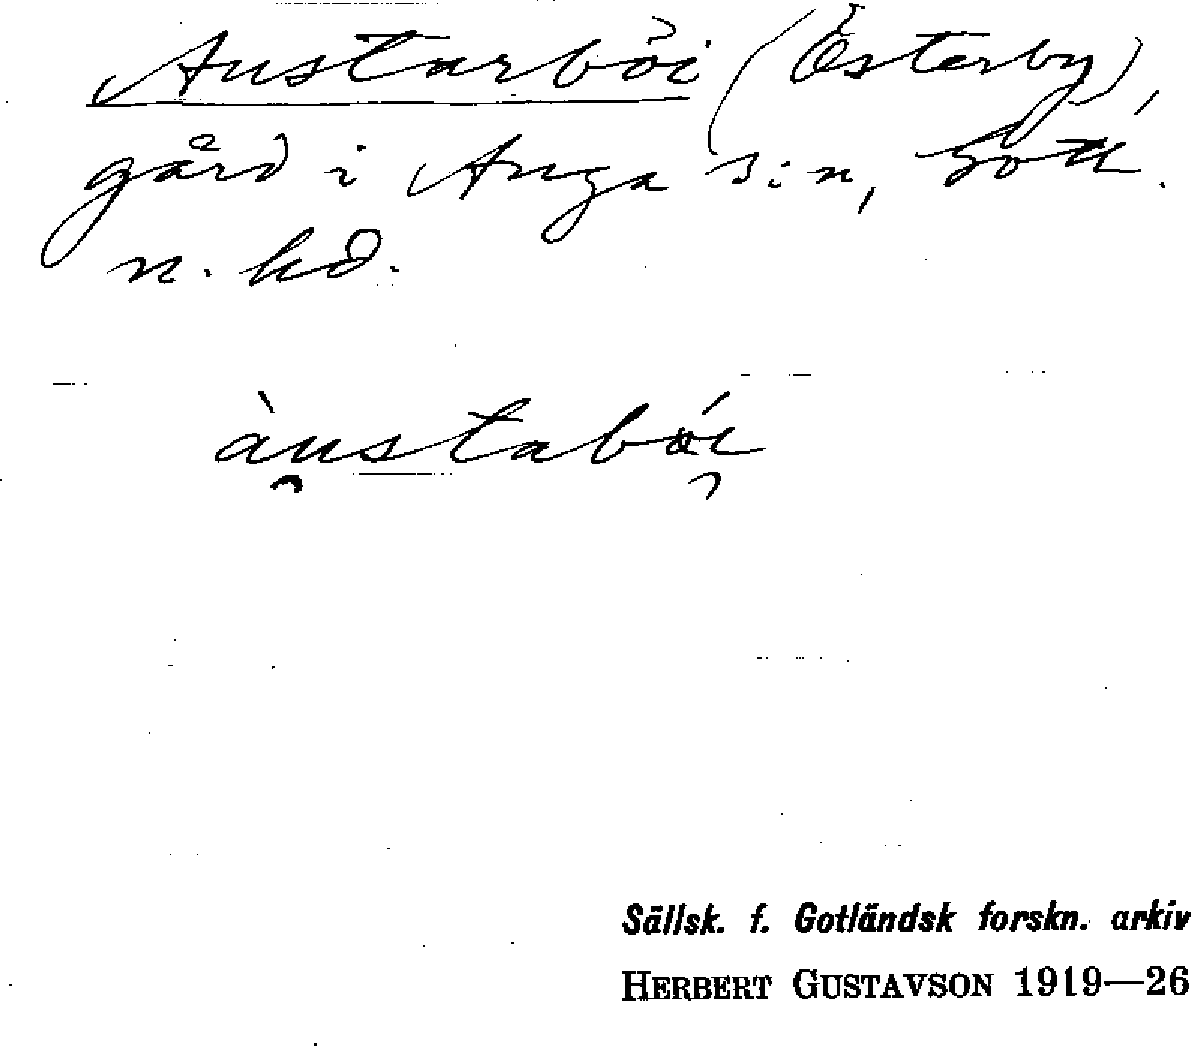 Austarbȯi (Österby),
gård i Anga s:n, Gotl.
n. hd.
àu̯stabói̯
Sällsk. f. Gotländsk forskn. arkiv
HERBERT GUSTAVSON 1919—26